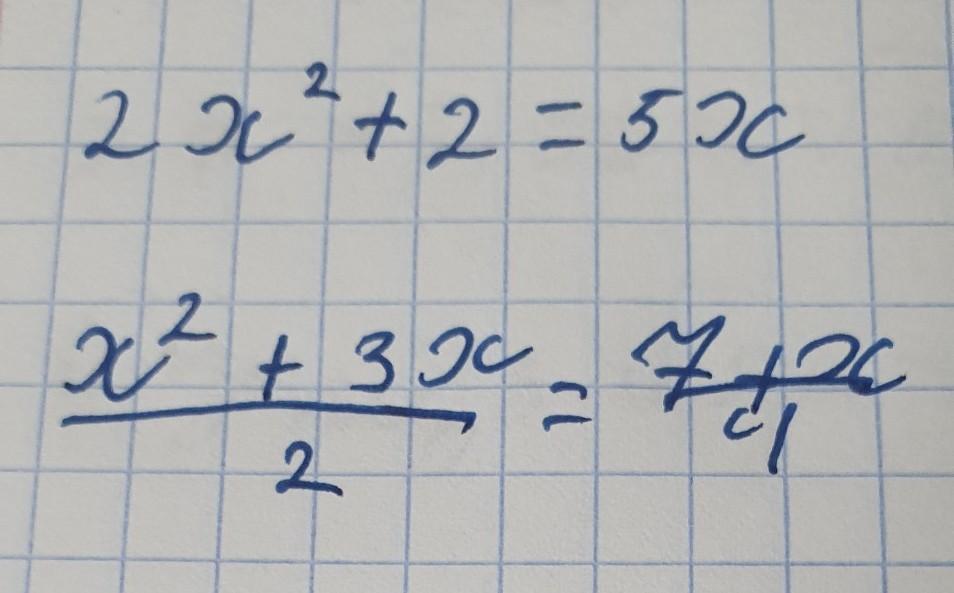 2x² + 2 = 5x
(x² + 3x)/2 = (7 + x)/4